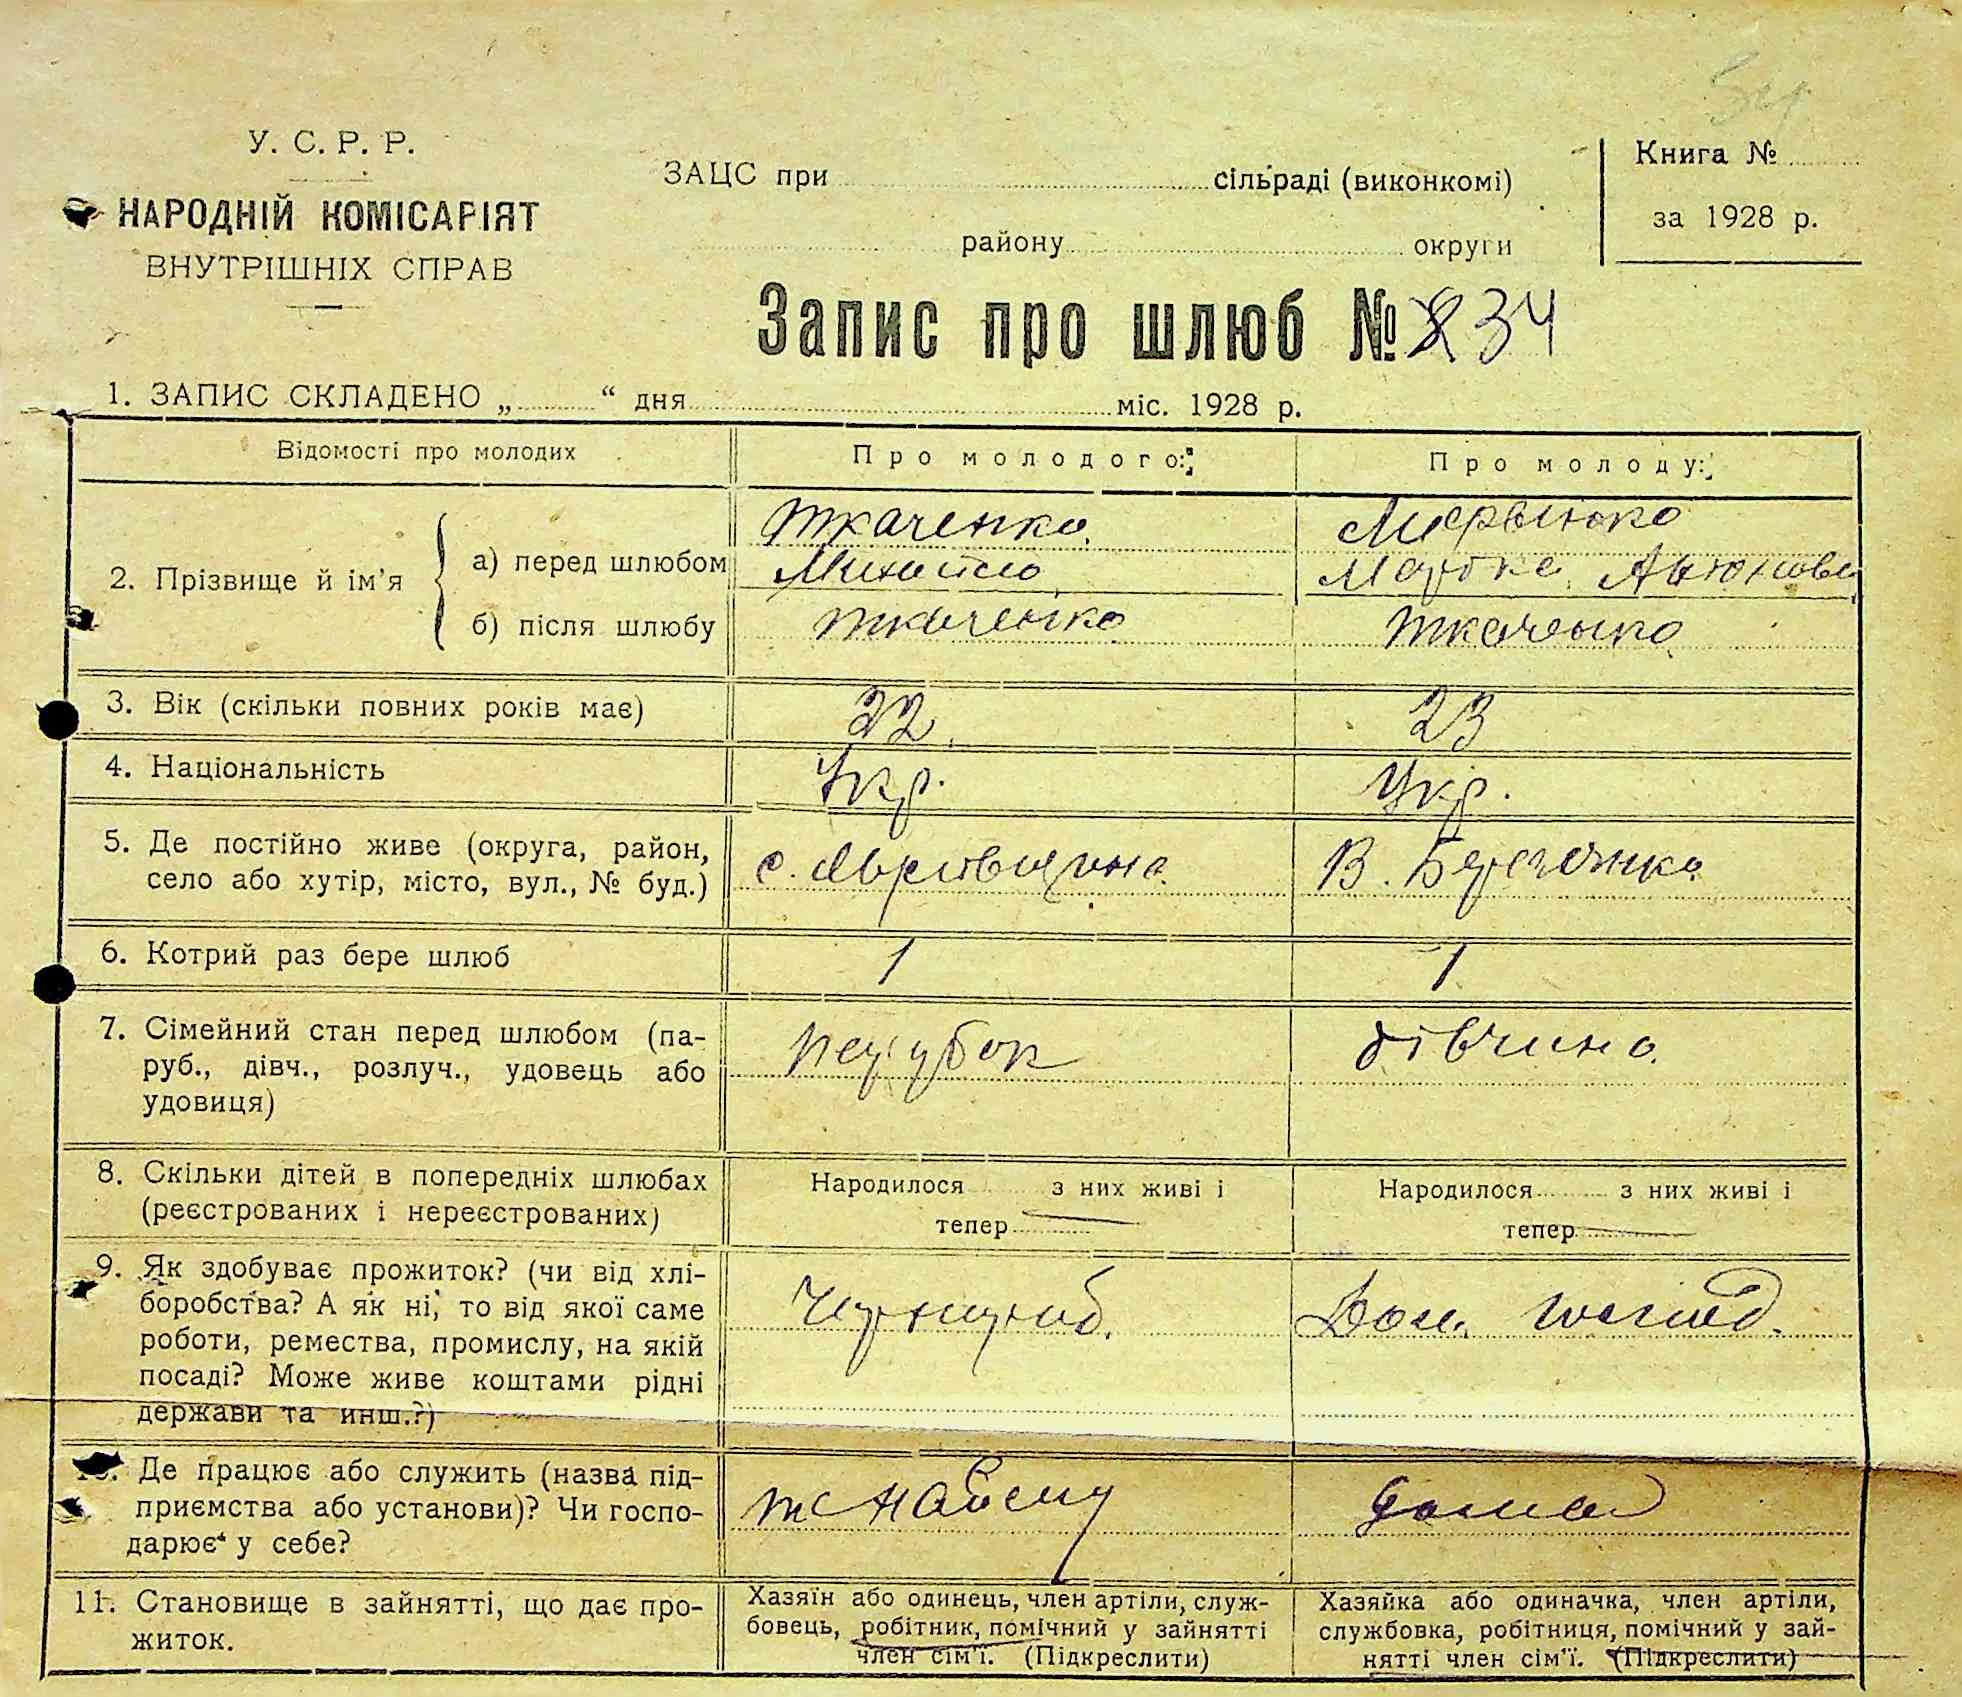 У. С. Р. Р.
НАРОДНІЙ КОМІСАРІЯТ
ВНУТРІШНІХ СПРАВ
ЗАЦС при сільраді (виконкомі)
району округи
Книга №
за 1928 р.
Запис про шлюб № 34
1. ЗАПИС СКЛАДЕНО „ “ дня міс. 1928 р.
Відомості про молодих Про молодого: Про молоду:
2. Прізвище й ім’я
а) перед шлюбом
Ткаченко
Михайло
Марфа
б) після шлюбу Ткаченко Ткаченко
3. Вік (скільки повних років має) 22 23
4. Національність Укр. Укр.
5. Де постійно живе (округа, район,
село або хутір, місто, вул., № буд.)
с.
В. Березянка
6. Котрий раз бере шлюб 1 1
7. Сімейний стан перед шлюбом (па-
руб., дівч., розлуч., удовець або
удовиця)
парубок дівчина
8. Скільки дітей в попередніх шлюбах
(реєстрованих і нереєстрованих)
Народилося з них живі і
тепер
Народилося з них живі і
тепер
9. Як здобуває прожиток? (чи від хлі-
боробства? А як ні, то від якої саме
роботи, ремества, промислу, на якій
посаді? Може живе коштами рідні
держави та инш.?)
Чорнороб.
Дом.
10. Де працює або служить (назва під-
приємства або установи)? Чи госпо-
дарює у себе?
найму
дома
11. Становище в зайнятті, що дає про-
житок.
Хазяїн або одинець, член артіли, служ-
бовець, робітник, помічний у зайнятті
член сім’ї. (Підкреслити)
Хазяйка або одиначка, член артіли,
службовка, робітниця, помічний у зай-
нятті член сім’ї. (Підкреслити)